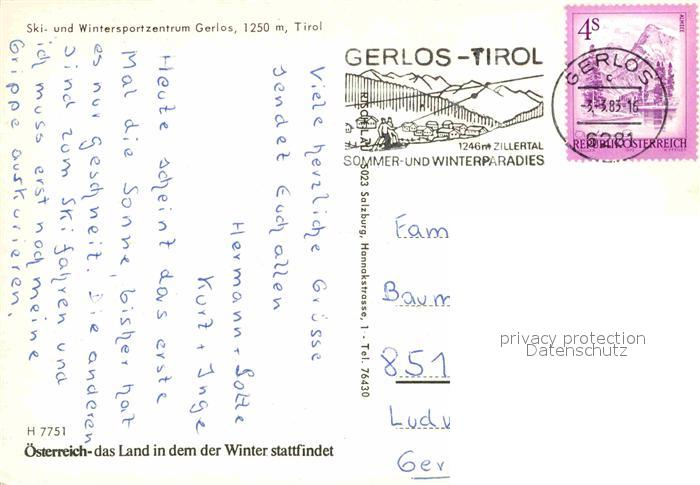 Ski- und Wintersportzentrum Gerlos, 1250 m, Tirol
Viele herzliche Grüsse
sendet Euch allen
Hermann + Lotte
Kurt + Inge
Heute scheint das erste
Mal die Sonne, bisher hat
es nur geschneit. Die anderen
sind zum Ski fahren und
ich muss erst noch meine
Grippe auskurieren.
H 7751
Österreich - das Land in dem der Winter stattfindet
5023 Salzburg, Hannakstrasse, 1 - Tel. 76430
GERLOS-TIROL
1246m ZILLERTAL
SOMMER-UND WINTERPARADIES
GERLOS
c
-3.-3.83-16
6281
4S
ALMSEE
REPUBLIK ÖSTERREICH
Fam
Baum
851
Ludw
Ger
privacy protection
Datenschutz